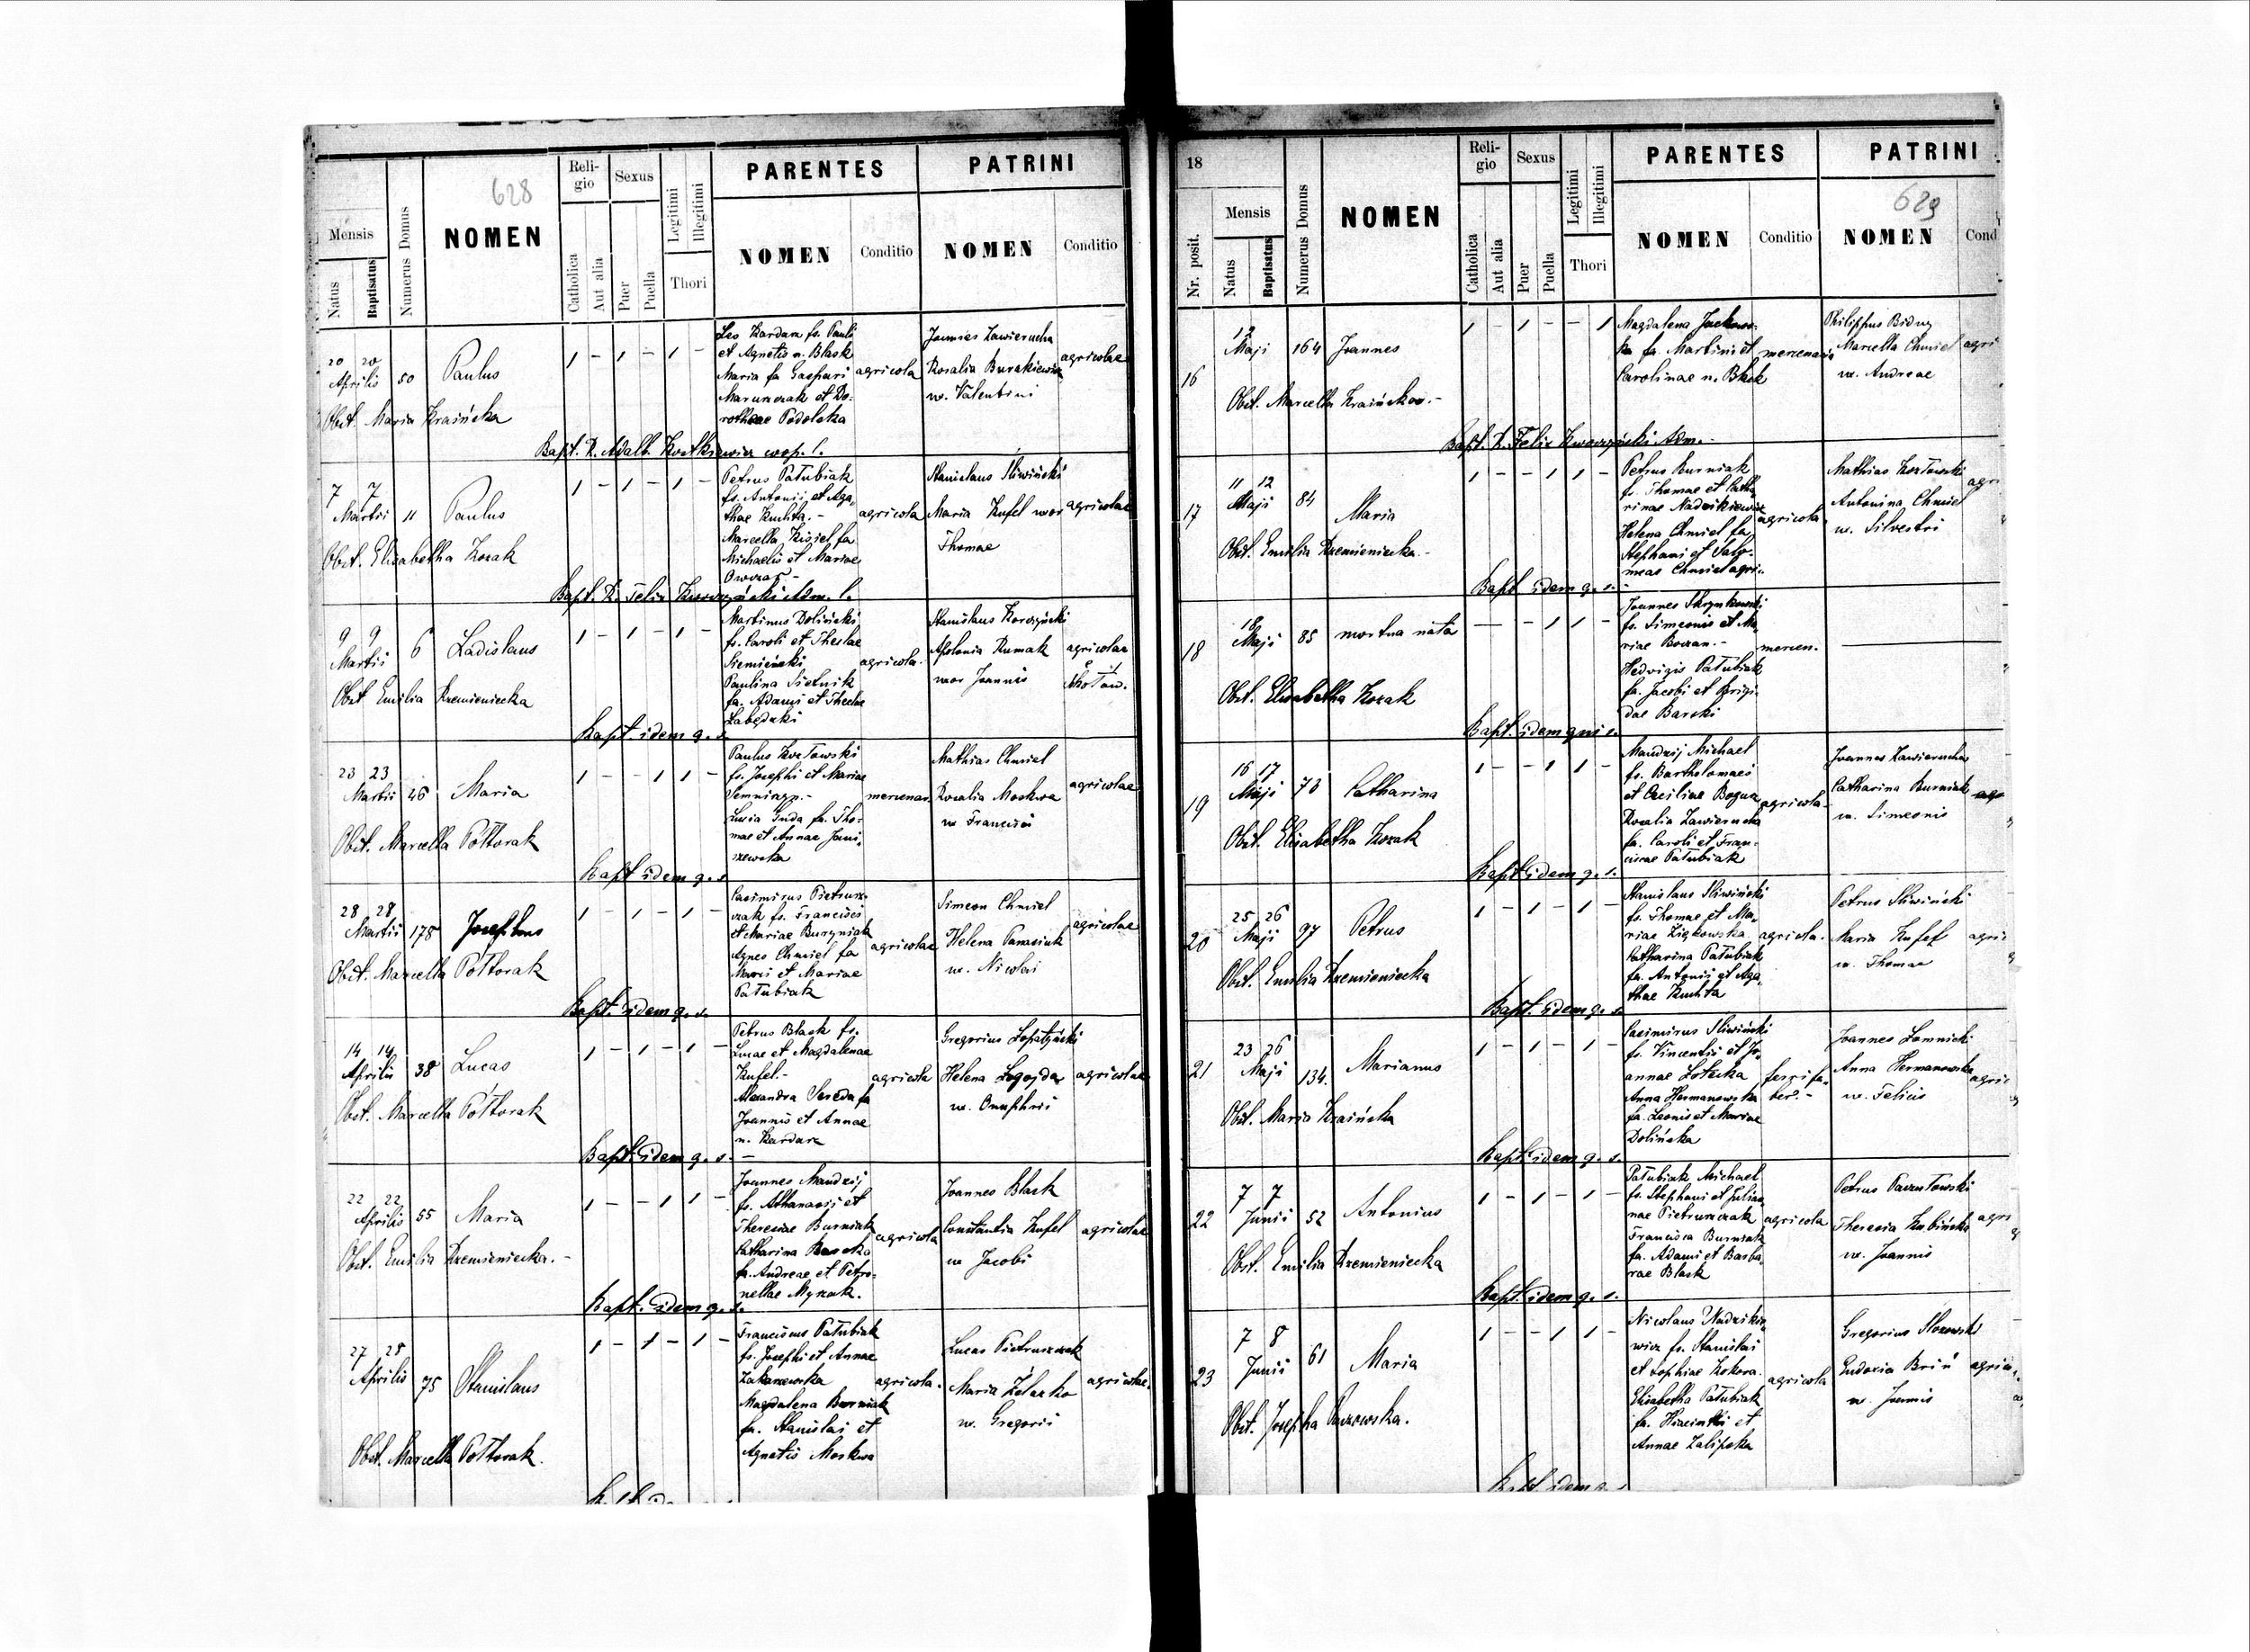 628
Mensis
Natus
Baptisatus
Numerus Domus
NOMEN
Religio
Catholica
Aut alia
Sexus
Puer
Puella
Legitimi
Illegitimi
Thori
PARENTES
NOMEN
Conditio
PATRINI
NOMEN
Conditio
20 20
Aprilis
50
Paulus
1 - 1 - 1 -
fs. Pauli
et Agnetis n. Blask
Maria fa Gaspari
Marunczak et Do-
rotheae Podolska
agricola
Joannes Zawierucha
Rosalia
w. Valentini
agricolae
Obst. Maria Kraińska
Bapt. R. Adalb.
7 7
Martii
11
Paulus
1 - 1 - 1 -
Petrus Patubiak
fs. Antonii et Aga-
thae Kuchta.-
Marcella Kisiel fa
Michaelis et Mariae
agricola
Stanislaus Sliwiński
Maria Kufel uxor
Thomae
agricolae
Obst. Elisabetha Kozak
Bapt. R. Felix
9 9
Martii
6
Ladislaus
1 - 1 - 1 -
Martinus Doliński
fs. Caroli et Theclae
Siemieński
Paulina
fa. Adami et Theclae
agricola.
Stanislaus
Apolonia Rumak
uxor Joannis
agricolae
Obst. Emilia Krzemieniecka
Bapt. idem q. s.
23 23
Martii
46
Maria
1 - - 1 1 -
Paulus
fs. Josephi et Mariae
Lucia Guda fa. Tho-
mae et Annae Jani-
szewska
mercenar.
Mathias Chmiel
Rosalia Moskwa
w. Francisci
agricolae
Obst. Marcella Półtorak
Bapt idem q. s
28 28
Martii
178
Josephus
1 - 1 - 1 -
Casimirus Pietrusz-
czak fs. Francisci
et Mariae Burzyniak
Agnes Chmiel fa
et Mariae
Patubiak
agricolae
Simeon Chmiel
Helena Panasiuk
w. Nicolai
agricolae
Obst. Marcella Półtorak
Bapt. idem q. s.
14 14
Aprilis
38
Lucas
1 - 1 - 1 -
Petrus Blask fs.
Lucae et Magdalenae
Kufel.-
Alexandra Sereda fa
Joannis et Annae
agricola
Gregorius Łopatyński
Helena Łogojda
w. Onuphrii
agricolae
Obst. Marcella Półtorak
Bapt. idem q. s.
22 22
Aprilis
55
Maria
1 - - 1 1 -
Joannes Mandzij
fs. Athanasii et
Theresiae Burniak
Catharina
fa. Andreae et Petro-
nellae
agricola
Joannes Blask
Constantia Kufel
w Jacobi
agricolae
Obst. Emilia Krzemieniecka.-
Bapt. idem q. s.
27 28
Aprilis
75
Stanislaus
1 - 1 - 1 -
Franciscus Patubiak
fs. Josephi et Annae
Zakaszewska
Magdalena Burniak
fa. Stanislai et
Agnetis Moskwa
agricola.
Lucas Pietruszczak
Maria Żelazko
w. Gregorii
agricolae.
Obst. Marcella Półtorak.
18
Nr. posit.
Mensis
Natus
Baptisatus
Numerus Domus
NOMEN
Religio
Catholica
Aut alia
Sexus
Puer
Puella
Legitimi
Illegitimi
Thori
PARENTES
NOMEN
Conditio
PATRINI
629
NOMEN
Cond
16
12
Maji
164
Joannes
1 - 1 - - 1
Magdalena
ka fa. Martini et
Carolinae n.
mercenaria
Philippus
Marcella Chmiel
w. Andreae
agri
Obst. Marcella Kraińskov.-
Bapt. R. Felix
17
11 12
Maji
84
Maria
1 - - 1 1 -
Petrus Burniak
fs. Thomae et Catha-
rinae
Helena Chmiel fa
Stephani et Salo-
meae Chmiel agri.
agricola
Mathias Kozłowski
Antonina Chmiel
w. Silvestri
agri
Obst. Emilia Krzemieniecka.-
Bapt idem q. s.
18
18
Maji
85
mortua nata
- - 1 1 -
Joannes
fs. Simeonis et Ma-
riae
Hedvigis Patubiak
fa. Jacobi et Brigi-
dae Barski
mercen.
Obst. Elisabetha Kozak
Bapt. idem qui s.
19
16 17
Maji
73
Catharina
1 - - 1 1 -
Mandzij Michael
fs. Bartholomaei
et Ceciliae
Rosalia Zawierucha
fa. Caroli et Fran-
ciscae Patubiak
agricola
Joannes Zawierucha
Catharina Burniak
w. Simeonis
Obst. Elisabetha Kozak
Bapt idem q. s.
20
25 26
Maji
97
Petrus
1 - 1 - 1 -
Stanislaus Sliwiński
fs. Thomae et Ma-
riae
Catharina Patubiak
fa. Antonii et Aga-
thae Kuchta
agricola.
Petrus Sliwiński
Maria Kufel
w. Thomae
agri
Obst. Emilia Krzemieniecka
Bapt. idem q. s.
21
23 26
Maji
134.
Marianus
1 - 1 - 1 -
Casimirus Sliwiński
fs. Vincentii et Jo-
annae
Anna Hermanowska
fa. Leonis et Mariae
Dolińska
ferrifa-
ber.-
Joannes
Anna Hermanowska
w. Felicis
agri
Obst. Maria Kraińska
Bapt. idem q. s.
22
7 7
Junii
52
Antonius
1 - 1 - 1 -
Patubiak Michael
fs. Stephani et Julian-
nae Pietruszczak
Francisca Burniak
fa. Adami et Barba-
rae Blask
agricola
Petrus
Theresia
w. Joannis
agri
Obst. Emilia Krzemieniecka
Bapt. idem q. s.
23
7 8
Junii
61
Maria
1 - - 1 1 -
Nicolaus
wicz fs. Stanislai
et Sophiae
Elisabetha Patubiak
fa. Hiacinthi et
Annae Zalipska
agricola
Gregorius
Eudoxia
w. Joannis
Obst. Josepha